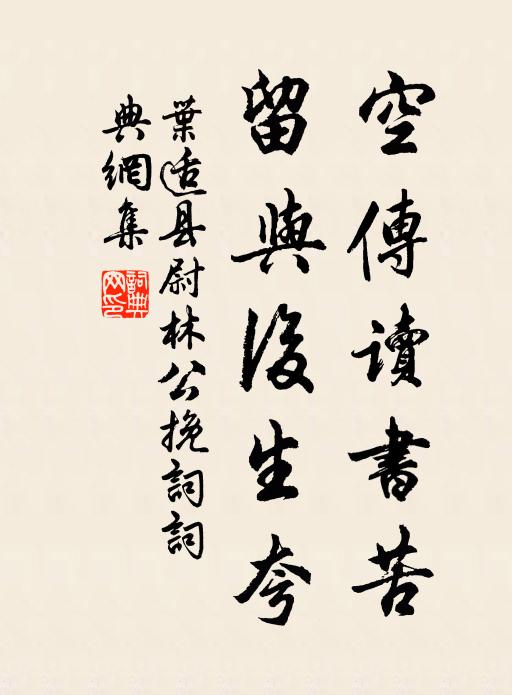 空傳讀書苦
留與後生夸
葉适县尉林公挽詞詞
典網集
詞典网印